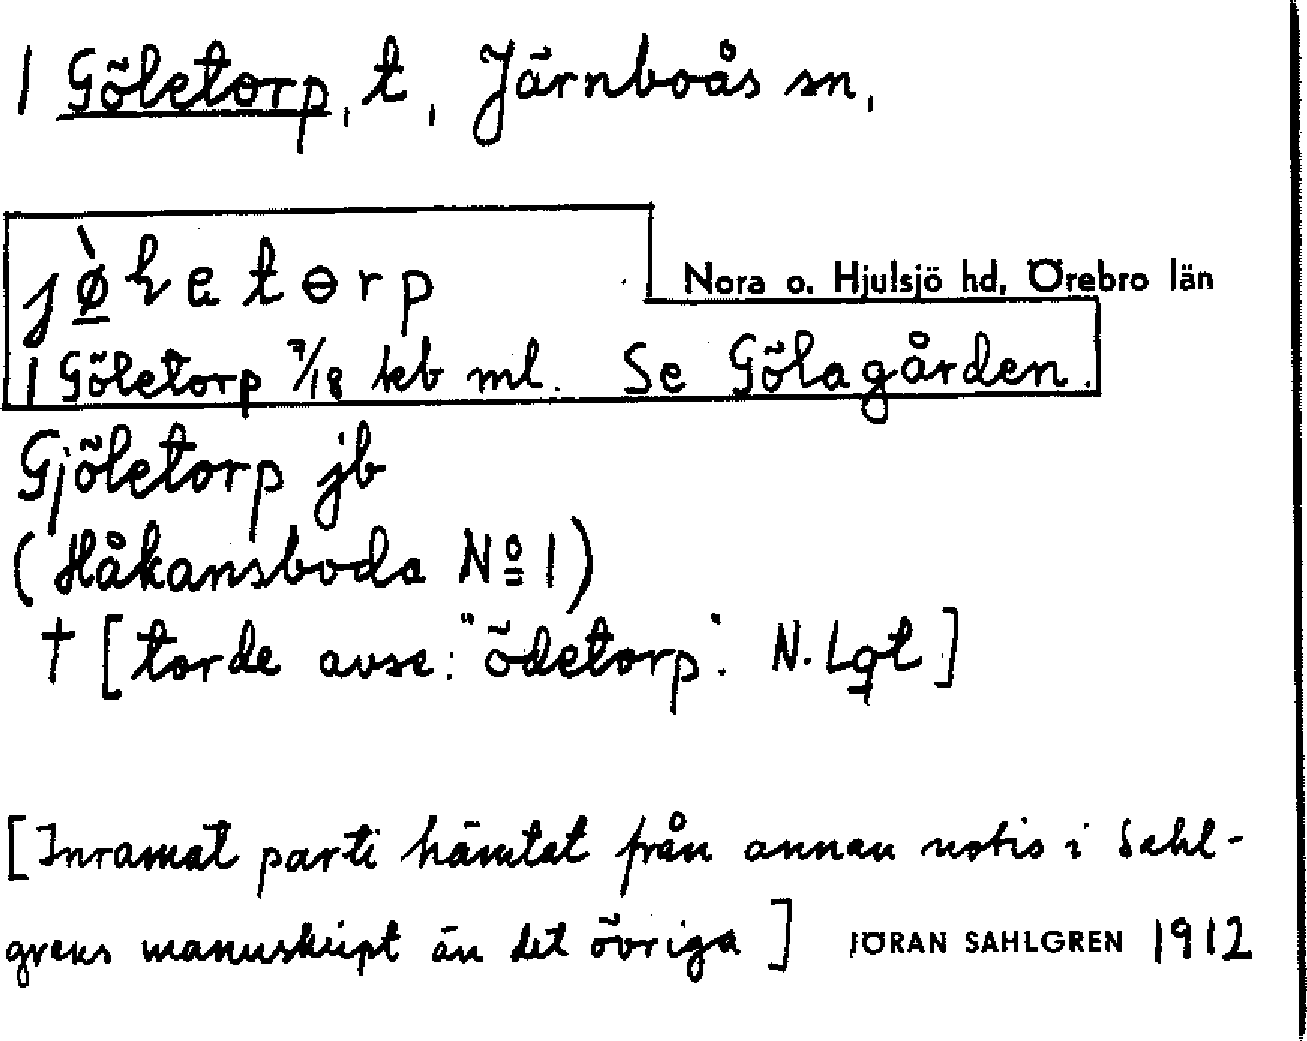 1 Göletorp, t, Järnboås sn,
jø̀letɵrp
Nora o. Hjulsjö hd, Örebro län
1 Göletorp 7/18 kb ml. Se Gölagården.
Gjöletorp jb
(Håkansboda Nº 1)
† [torde avse: "ödetorp". N. Lgt]
[Inramat parti hämtat från annan notis i Sahl-
grens manuskript än det övriga] JÖRAN SAHLGREN 1912